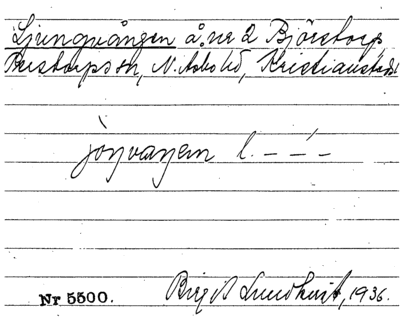 Ljungvången å nr 2 Björstorp
Brustorps sn, N. Åsbo hd, Kristianstads l
jöŋvaŋen l. – –́ –
Nr 5500. Birgit Lundkvist, 1936.